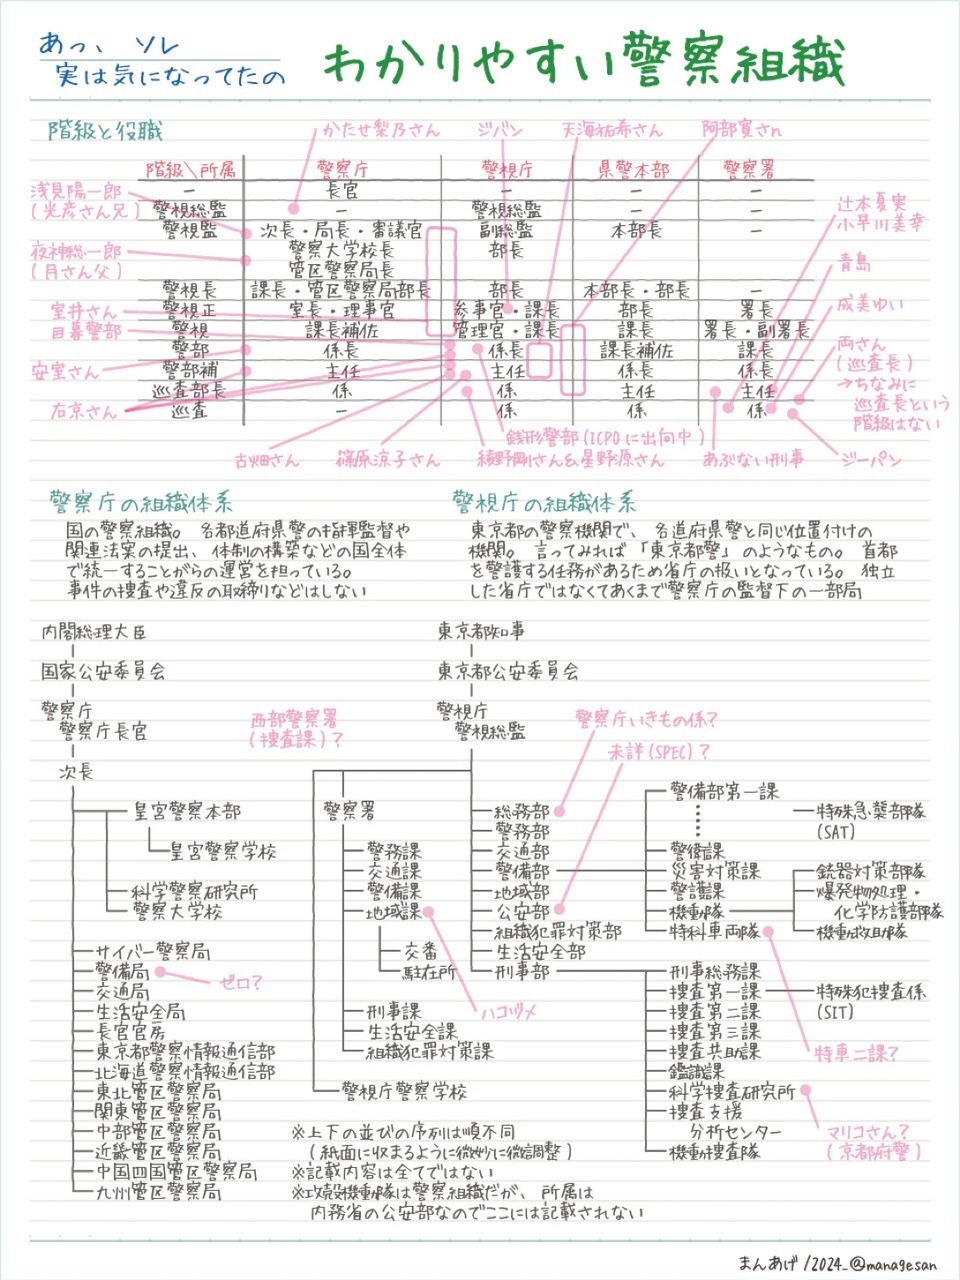 あっ、 ソレ
実は気になってたの
わかりやすい警察組織
階級と役職
かたせ梨乃さん
ジバン
天海祐希さん
阿部寛さん
階級\所属 警察庁 警視庁 県警本部 警察署
- 長官 - - -
警視総監 - 警視総監 - -
警視監 次長・局長・審議官 副総監 本部長 -
警察大学校長 部長
管区警察局長
警視長 課長・管区警察局部長 部長 本部長・部長 -
警視正 室長・理事官 参事官・課長 部長 署長
警視 課長補佐 管理官・課長 課長 署長・副署長
警部 係長 係長 課長補佐 課長
警部補 主任 主任 係長 係長
巡査部長 係 係 主任 主任
巡査 - 係 係 係
浅見陽一郎
(光彦さん兄)
夜神総一郎
(月さん父)
室井さん
目暮警部
安室さん
右京さん
辻本夏実
小早川美幸
青島
成美ゆい
両さん
(巡査長)
→ちなみに
巡査長という
階級はない
銭形警部(ICPOに出向中)
古畑さん
篠原涼子さん
綾野剛さん&星野源さん
あぶない刑事
ジーパン
警察庁の組織体系
国の警察組織。 各都道府県警の指揮監督や
関連法案の提出、体制の構築などの国全体
で統一することがらの運営を担っている。
事件の捜査や違反の取締りなどはしない
警視庁の組織体系
東京都の警察機関で、各道府県警と同じ位置付けの
機関。 言ってみれば「東京都警」のようなもの。首都
を警護する任務があるため省庁の扱いとなっている。 独立
した省庁ではなくてあくまで警察庁の監督下の一部局
内閣総理大臣
国家公安委員会
警察庁
警察庁長官
次長
皇宮警察本部
皇宮警察学校
科学警察研究所
警察大学校
サイバー警察局
警備局
ゼロ?
交通局
生活安全局
長官官房
東京都警察情報通信部
北海道警察情報通信部
東北管区警察局
関東管区警察局
中部管区警察局
近畿管区警察局
中国四国管区警察局
九州管区警察局
東京都知事
東京都公安委員会
警視庁
警視総監
西部警察署
(捜査課)?
警察庁いきもの係?
未詳(SPEC)?
警察署
警務課
交通課
警備課
地域課
交番
駐在所
ハコヅメ
刑事課
生活安全課
組織犯罪対策課
警視庁警察学校
総務部
警務部
交通部
警備部
地域部
公安部
組織犯罪対策部
生活安全部
刑事部
警備部第一課
特殊急襲部隊
(SAT)
警備課
災害対策課
警護課
機動隊
銃器対策部隊
爆発物処理・
化学防護部隊
機動救助隊
特科車両隊
特車二課?
刑事総務課
捜査第一課
特殊犯捜査係
(SIT)
捜査第二課
捜査第三課
捜査共助課
鑑識課
科学捜査研究所
マリコさん?
(京都府警)
捜査支援
分析センター
機動捜査隊
※上下の並びの序列は順不同
(紙面に収まるように微妙に微調整)
※記載内容は全てではない
※攻殻機動隊は警察組織だが、所属は
内務省の公安部なのでここには記載されない
まんあげ/2024_@managesan